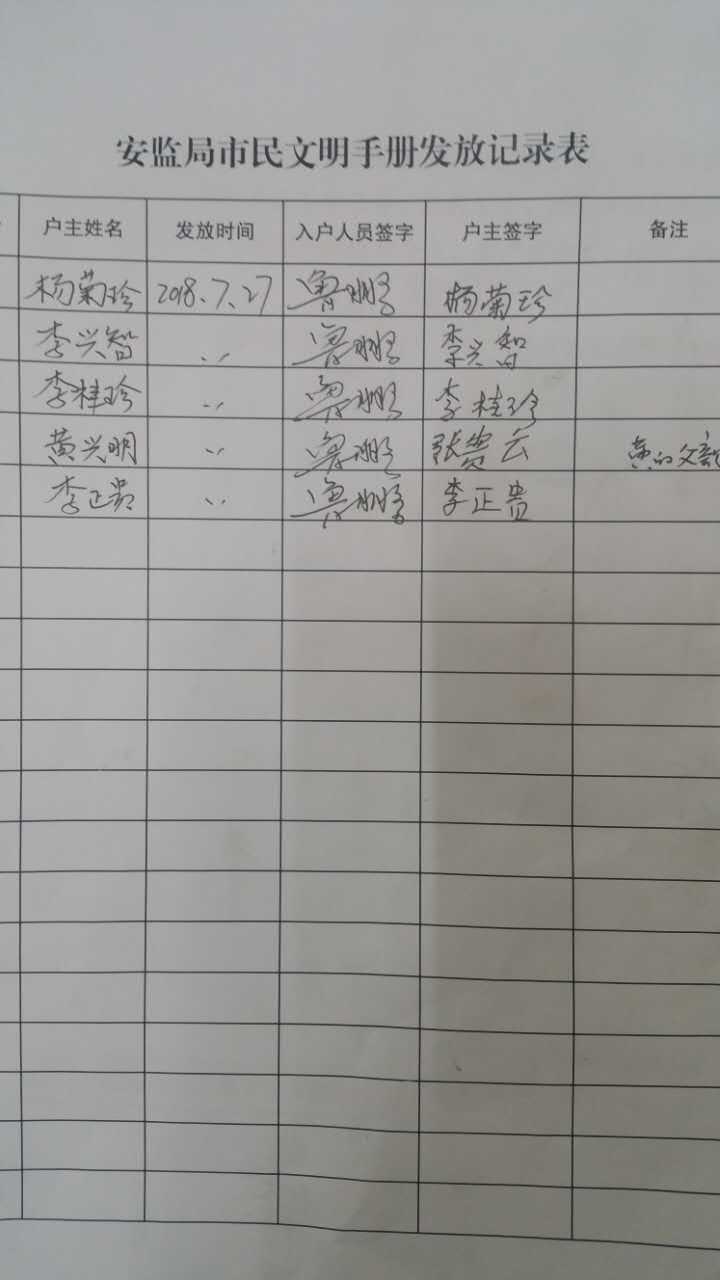 安监局市民文明手册发放记录表
户主姓名 发放时间 入户人员签字 户主签字 备注
杨菊珍 2018.7.27 鲁 杨菊珍
李兴智 〃 鲁 李兴智
李桂珍 〃 鲁 李桂珍
黄兴明 〃 鲁 张贵云 黄的
李正贵 〃 鲁 李正贵